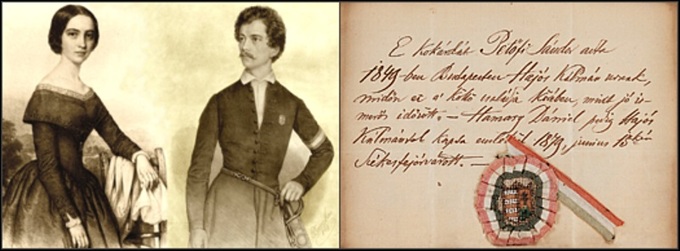 E kokárdát Petőfi Sándor adta
1849-ben Budapesten Hajós Kálmán urnak,
midőn ez a' költő családja körében mint jó is-
merős időzött. — Hamary Dániel pedig Hajós
Kálmántól kapta emlékül 1879, junius
Székesfejérvárott. —